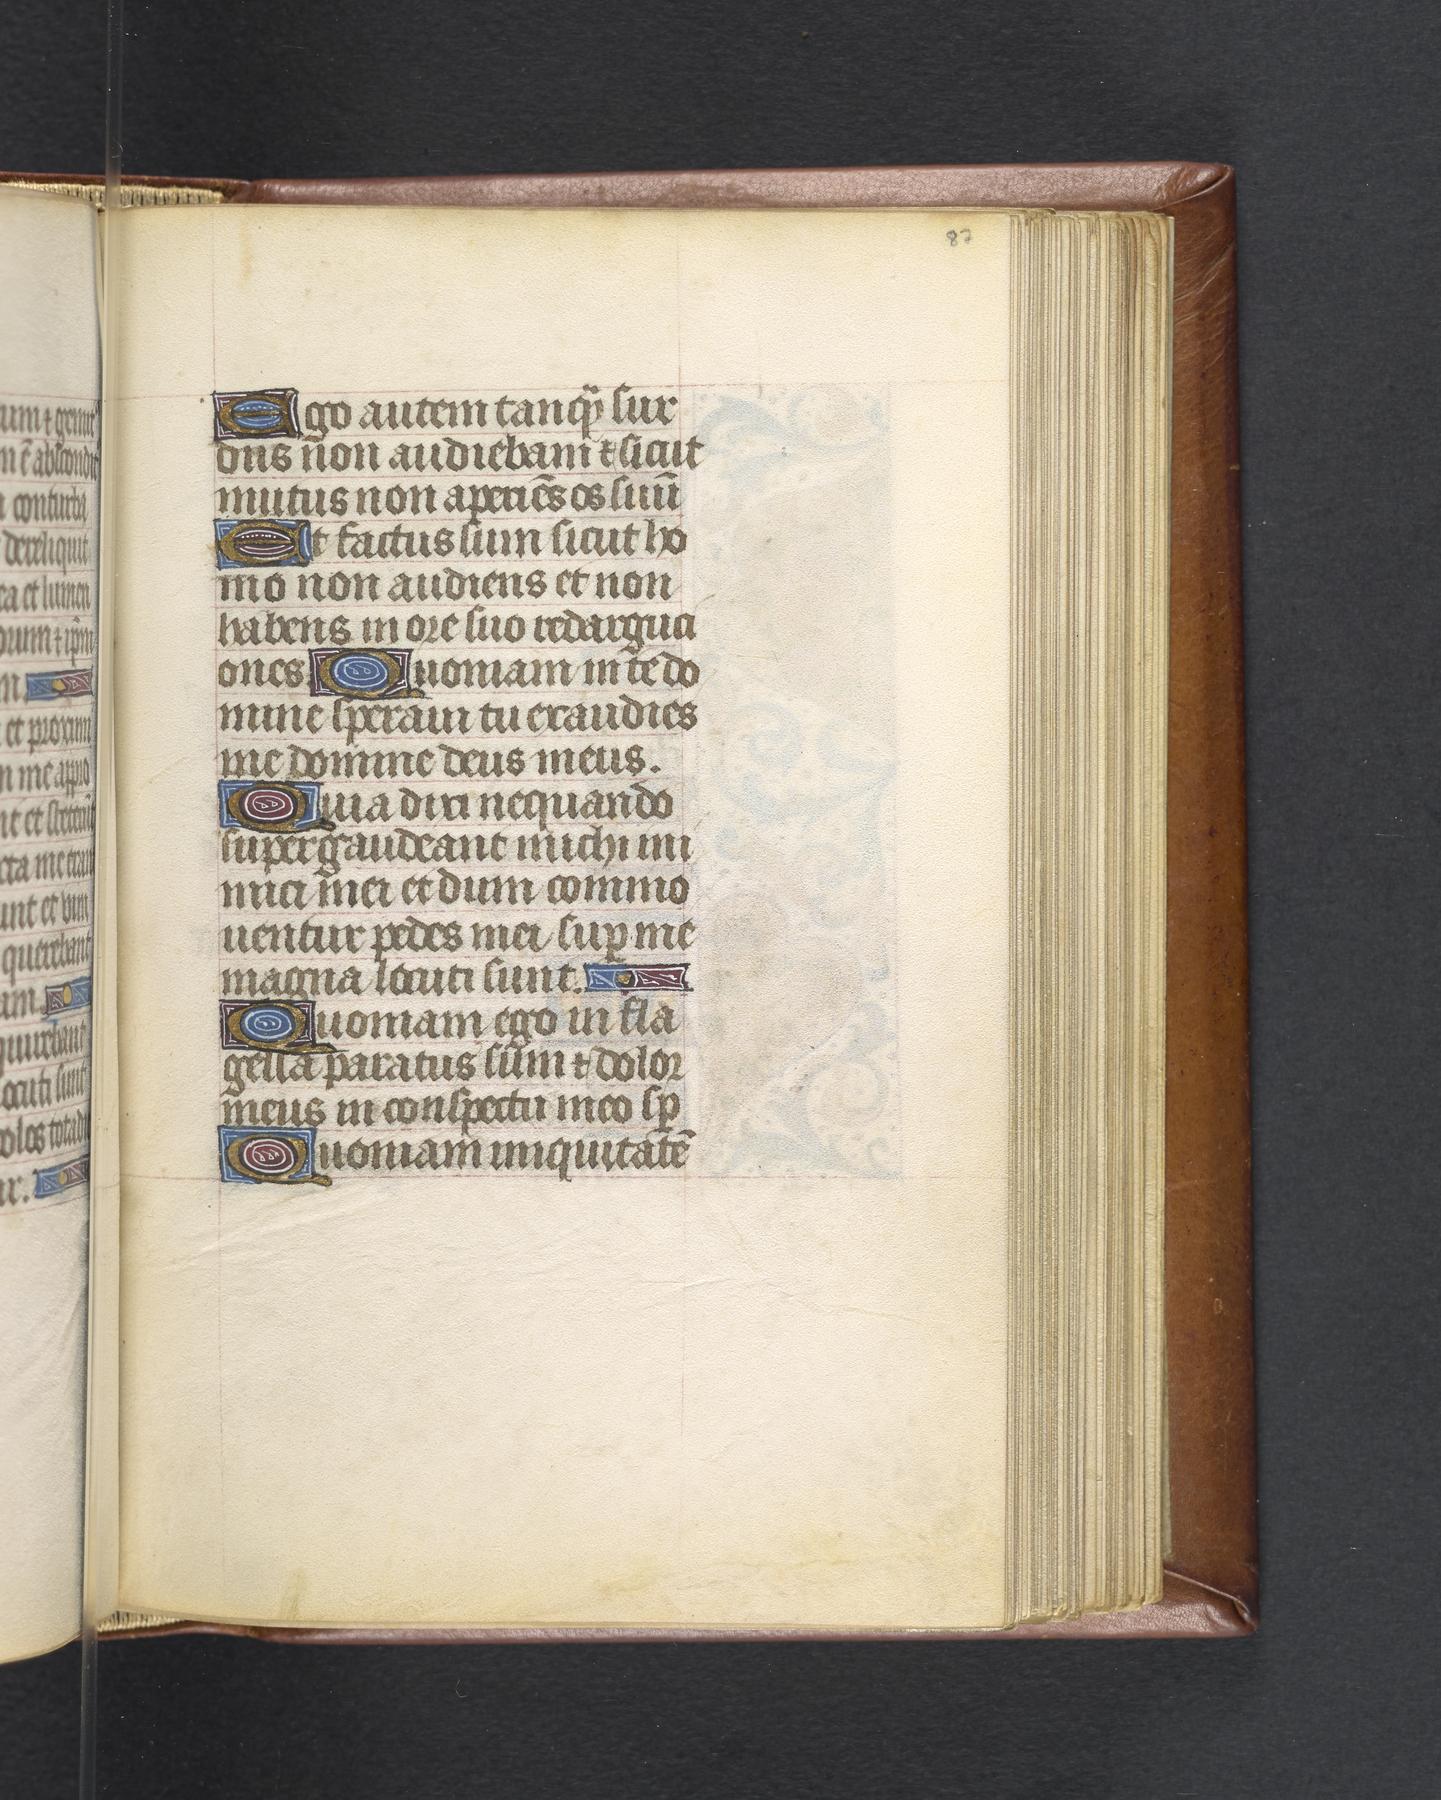 87
Ego autem tanq̃ sur
dus non audiebam ⁊ sicut
mutus non aperiẽs os suũ
Et factus sum sicut ho
mo non audiens et non
habens in ore suo redarguci
ones. Quoniam in te do
mine speraui tu exaudies
me domine deus meus.
Quia dixi nequando
supergaudeant michi ini
mici mei et dum commo
uentur pedes mei suꝑ me
magna locuti sunt.
Quoniam ego in fla
gella paratus sum ⁊ dolor
meus in conspectu meo sp̄
Quoniam iniquitatẽ
conturba
dereliquit
et lumen
et proximi
et steterũt
unt et uim
querebant
locuti sunt